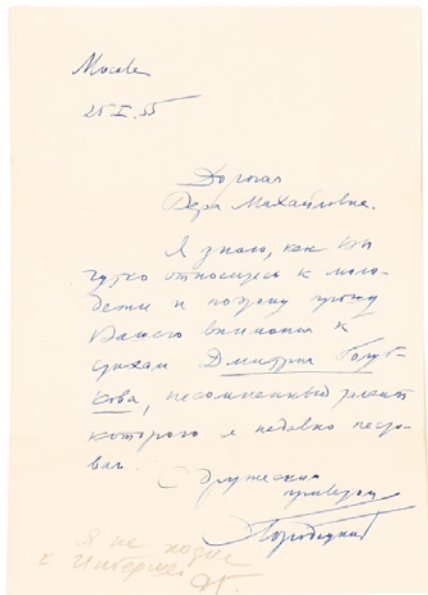 Москва
25 I. 55
Дорогая
Вера Михайловна.
Я знаю, как Вы
чутко относитесь к моло-
дежи и поэтому прошу
Вашего внимания к
стихам Дмитрия Голуб-
кова, несомненный талант
которого я недавно
С дружеским
приветом
Городецкий
Я не ходил
к
ДГ.